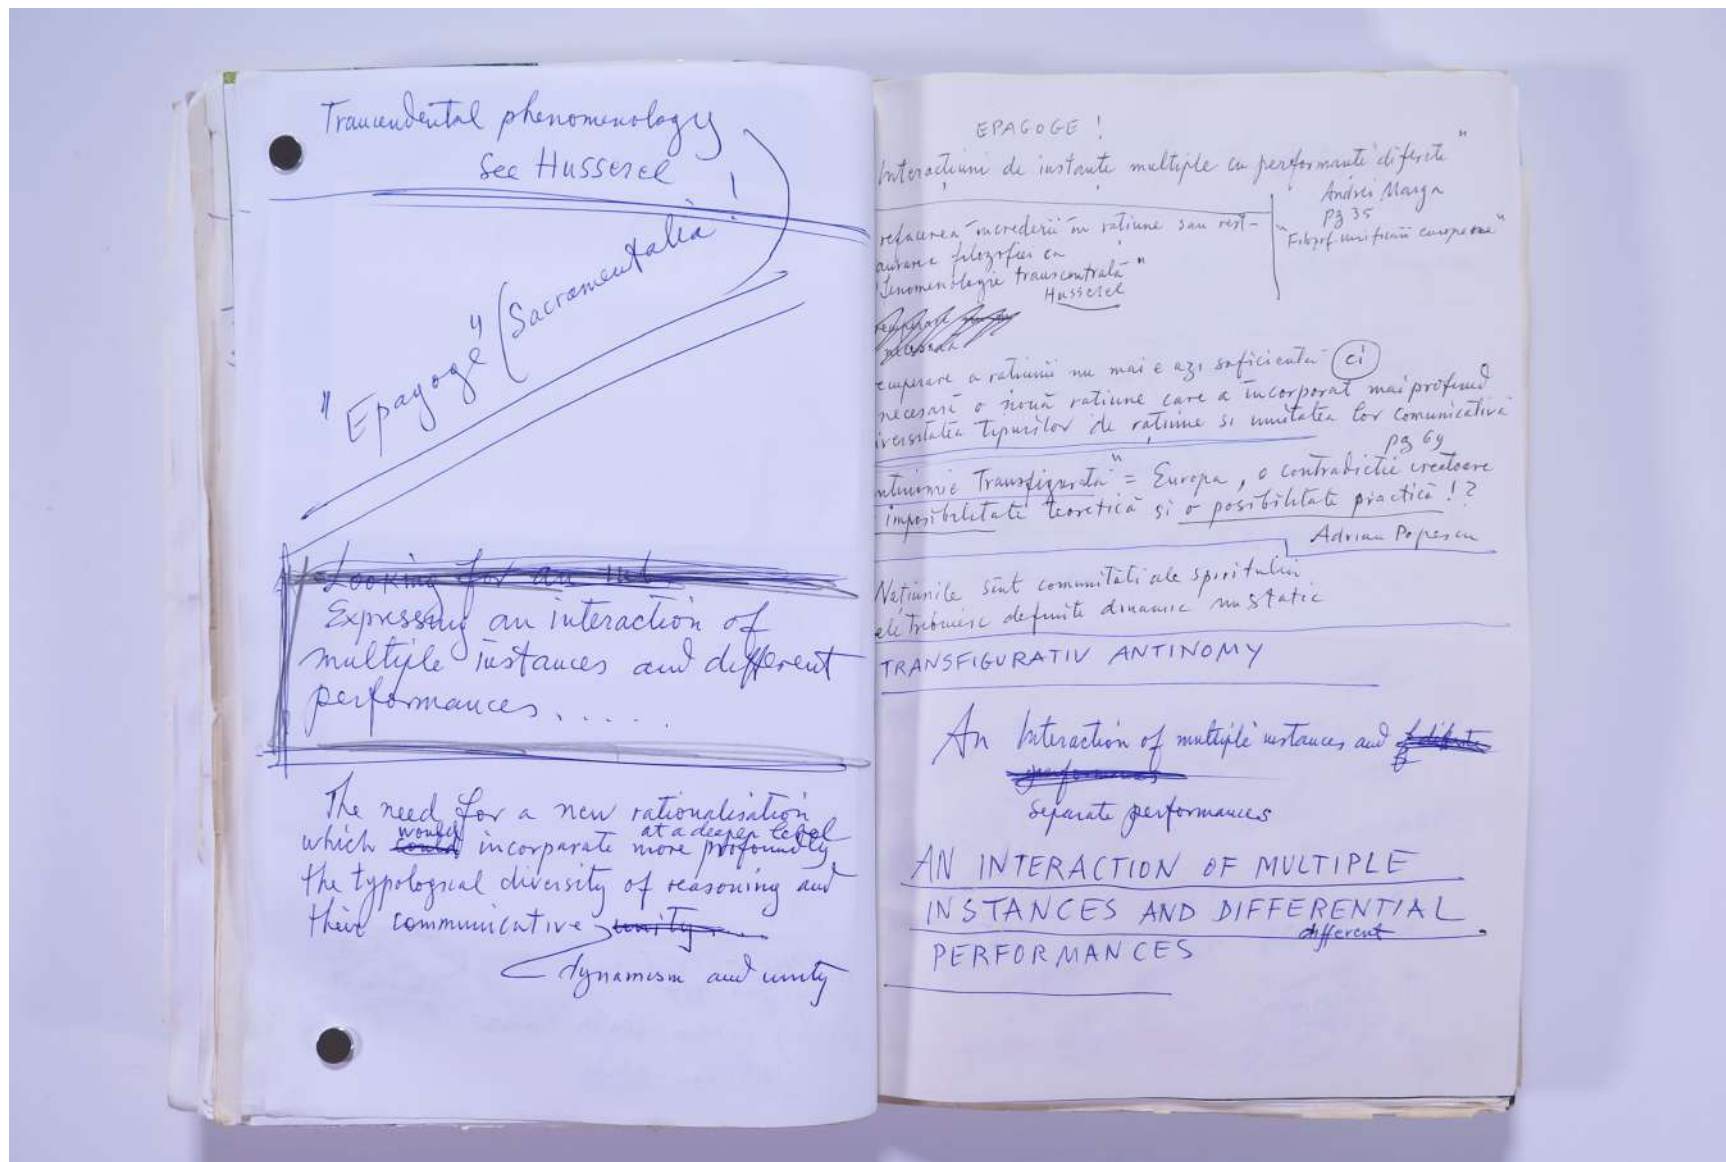 Trancendental phenomenology
See Husserel
"Epagoge" (Sacramentalia !
Looking for an
Expressing an interaction of
multiple instances and different
performances.....
The need for a new rationalisation
would at a deeper level
which could incorparate more profoundly
the typological diversity of reasoning and
their communicative unity....
dynamism and unity
EPAGOGE !
Interacțiuni de instante multiple cu performante diferite"
Andrei Marga
pg 35
"Filozof. unificării europene"
refacerea încrederii în ratiune sau rest-
aurarea filozofiei ca
fenomenologie transcentrală"
Husserel
recuperare
necesară
recuperare a ratiunii nu mai e azi suficientă ci
necesară o nouă ratiune care a incorporat mai profund
diversitatea tipurilor de rațiune si unitatea lor comunicativă
pg 69
Antinomie Transfigurată" = Europa, o contradictie creatoare
imposibilitate teoretică și o posibilitate practică !?
Adrian Popescu
Națiunile sînt comunităti ale spiritului
ele trebuiesc definite dinamic nu static
TRANSFIGURATIV ANTINOMY
An Interaction of multiple instances and
performances
Separate performances
AN INTERACTION OF MULTIPLE
INSTANCES AND DIFFERENTIAL
different
PERFORMANCES